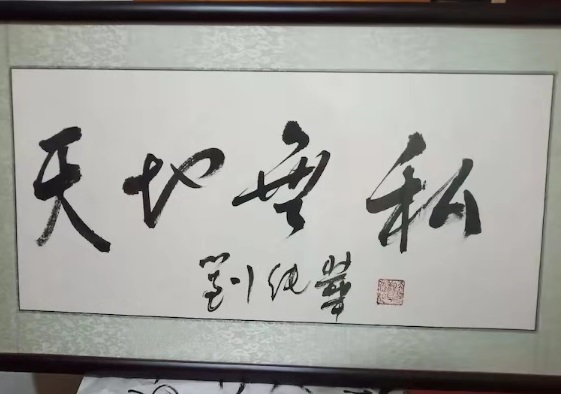 天地無私
劉純華